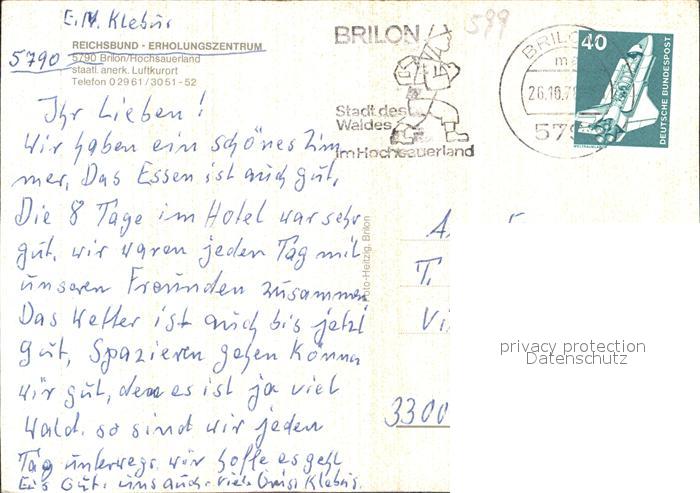 E. M. Klebür
REICHSBUND · ERHOLUNGSZENTRUM
5790
5790 Brilon/Hochsauerland
staatl. anerk. Luftkurort
Telefon 02961/3051-52
BRILON
Stadt des
Waldes
im Hochsauerland
599
BRILON
26.10.7
579
40
DEUTSCHE BUNDESPOST
Ihr Lieben!
Wir haben ein schönes Zim
mer, Das Essen ist auch gut,
Die 8 Tage im Hotel war sehr
gut, wir waren jeden Tag mit
unseren Freunden zusammen
Das Wetter ist auch bis jetzt
gut, Spazieren gehen können
wir gut, denn es ist ja viel
Wald. so sind wir jeden
Tag unterwegs. wir hoffe es geht
Euch Gut. uns auch. viele Grüsse Klebür.
Foto-Heitzig, Brilon
A.
T.
Vi
3300
privacy protection
Datenschutz